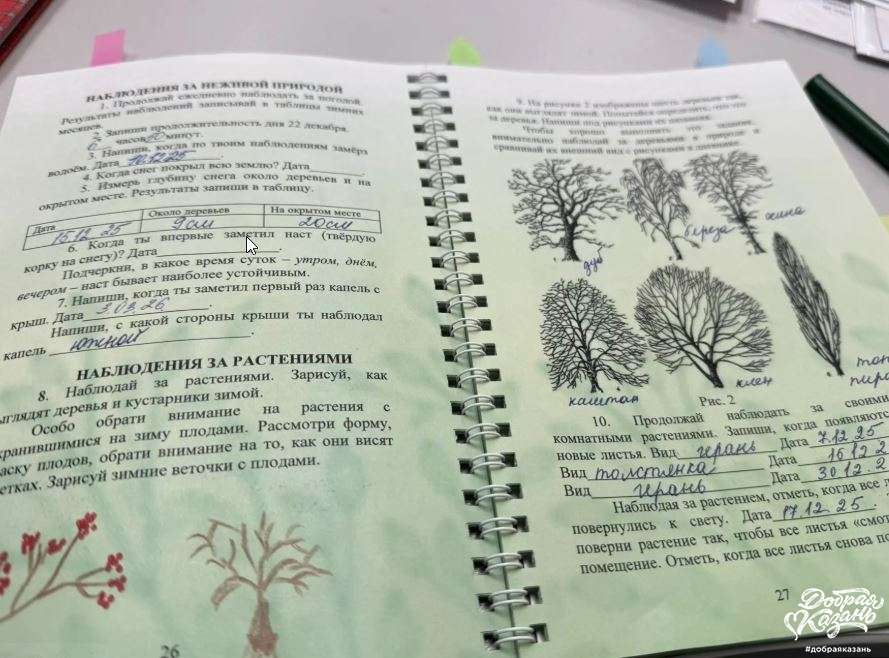 НАБЛЮДЕНИЯ ЗА НЕЖИВОЙ ПРИРОДОЙ
1. Продолжай ежедневно наблюдать за погодой.
Результаты наблюдений записывай в таблицы зимних
месяцев.
2. Запиши продолжительность дня 22 декабря.
6 часов минут.
3. Напиши, когда по твоим наблюдениям замёрз
водоём. Дата 16.12.25.
4. Когда снег покрыл всю землю? Дата
5. Измерь глубину снега около деревьев и на
открытом месте. Результаты запиши в таблицу.
Дата Около деревьев На окрытом месте
15.12.25 9см 20см
6. Когда ты впервые заметил наст (твёрдую
корку на снегу)? Дата
Подчеркни, в какое время суток – утром, днём,
вечером – наст бывает наиболее устойчивым.
7. Напиши, когда ты заметил первый раз капель с
крыш. Дата 3.03.26
Напиши, с какой стороны крыши ты наблюдал
капель южной
НАБЛЮДЕНИЯ ЗА РАСТЕНИЯМИ
8. Наблюдай за растениями. Зарисуй, как
ыглядят деревья и кустарники зимой.
Особо обрати внимание на растения с
хранившимися на зиму плодами. Рассмотри форму,
аску плодов, обрати внимание на то, как они висят
етках. Зарисуй зимние веточки с плодами.
26
9. На рисунке 2 изображены шесть деревьев так,
как они выглядят зимой. Попытайся определить, что это
за деревья. Напиши под рисунками их названия.
Чтобы хорошо выполнить это задание,
внимательно наблюдай за деревьями в природе и
сравнивай их внешний вид с рисунками в дневнике.
дуб береза осина
каштан клен топ
пира
Рис. 2
10. Продолжай наблюдать за своими
комнатными растениями. Запиши, когда появляютс
новые листья. Вид герань Дата 7.12.25
Вид толстянка Дата 16.12.2
Вид герань Дата 30.12.2
Наблюдая за растением, отметь, когда все л
повернулись к свету. Дата 17.12.25.
поверни растение так, чтобы все листья «смот
помещение. Отметь, когда все листья снова по
27
Добрая
Казань
#добраяказань